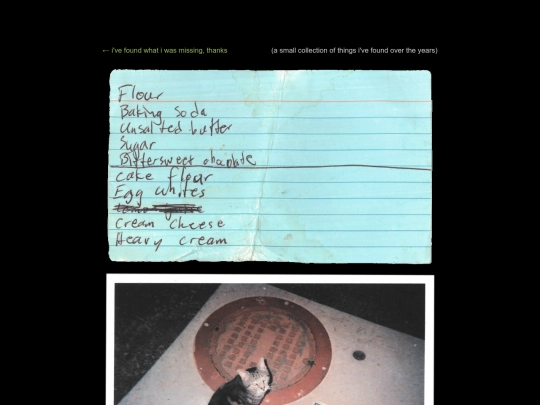 ← i've found what i was missing, thanks
(a small collection of things i've found over the years)
Flour
Baking soda
Unsalted butter
Sugar
Bittersweet chocolate
cake flour
Egg whites
Cream cheese
Heavy cream